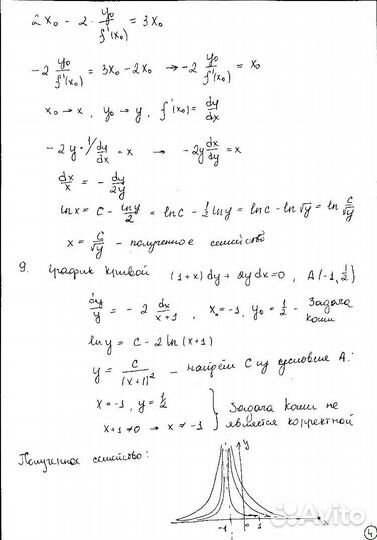 2x₀ - 2 · y₀/f'(x₀) = 3x₀
-2 y₀/f'(x₀) = 3x₀ - 2x₀ → -2 y₀/f'(x₀) = x₀
x₀ → x, y₀ → y, f'(x₀) = dy/dx
-2y · 1/(dy/dx) = x → -2y dx/dy = x
dx/x = - dy/2y
lnx = C - lny/2 = lnC - 1/2 lny = lnC - ln√y = ln C/√y
x = C/√y - полученное семейство
9. График кривой (1+x)dy + 2ydx = 0, A(-1, 1/2)
dy/y = -2 dx/(x+1), x₀ = -1, y₀ = 1/2 - Задача Коши
lny = C - 2ln(x+1)
y = C/(x+1)² - найдём C из условие A:
x = -1, y = 1/2
x+1 ≠ 0 → x ≠ -1 } Задача Коши не является корректной
Полученное семейство:
y
-1 0 1 x
Avito
4